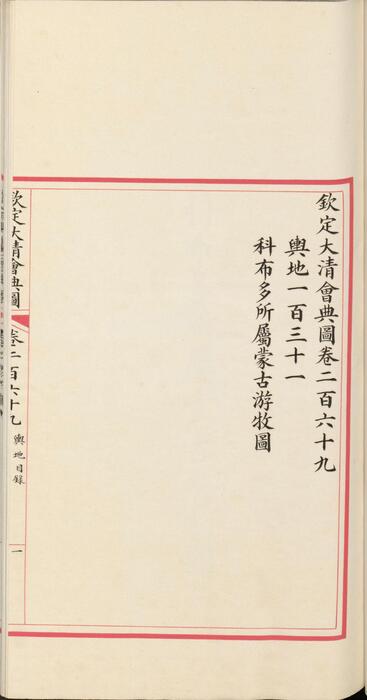 欽定大清會典圖卷二百六十九
輿地一百三十一
科布多所屬蒙古游牧圖
欽定大清會典圖
卷二百六十九
輿地目錄
一